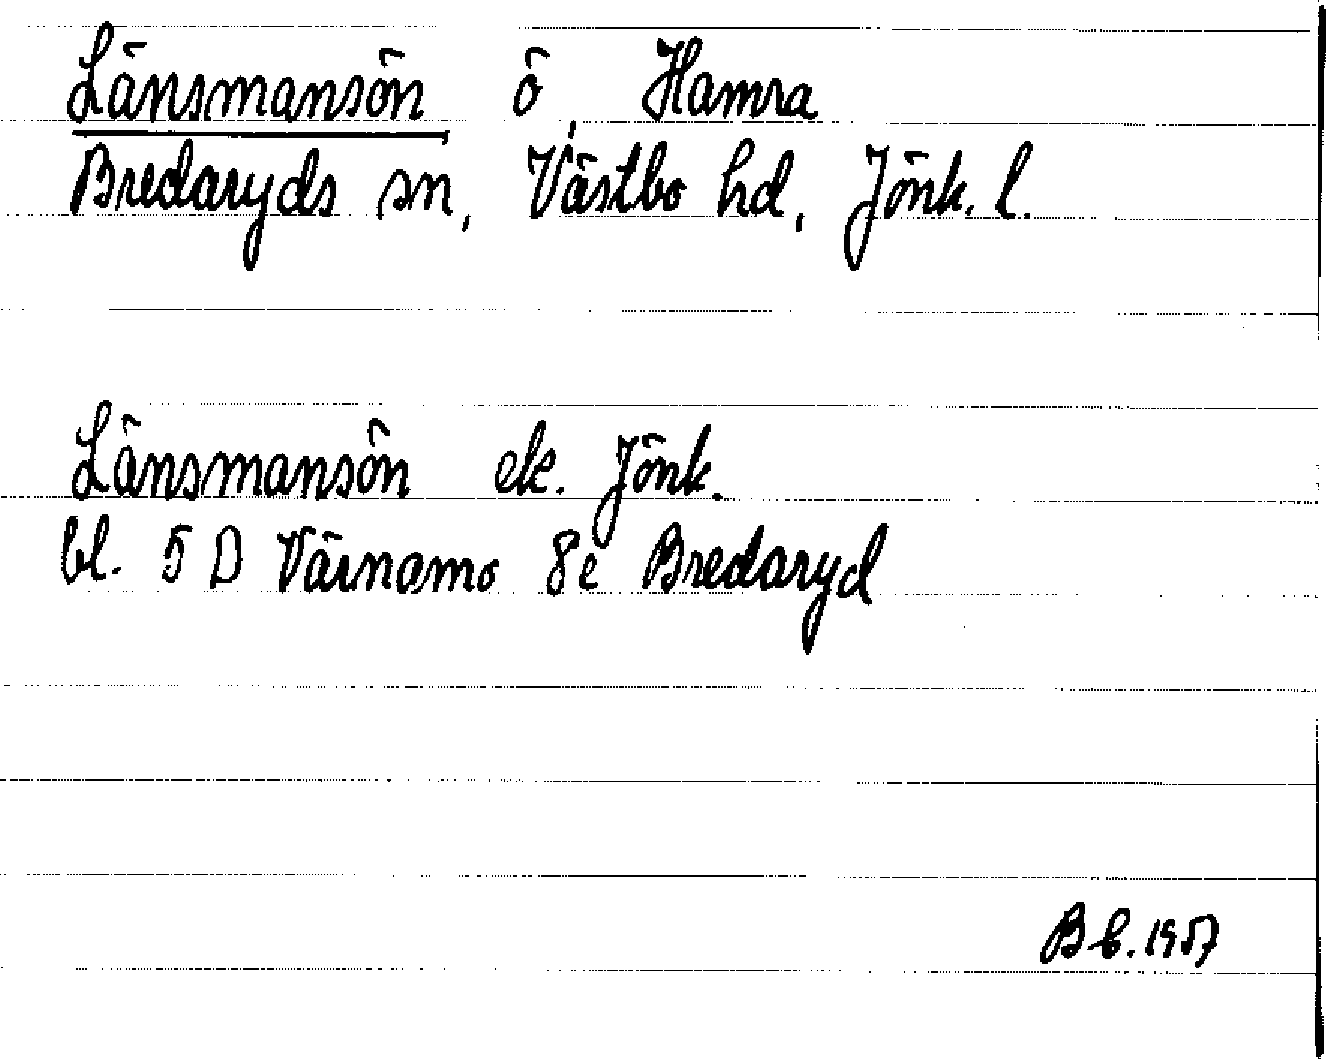 Länsmansön ö, Hamra
Bredaryds sn, Västbo hd, Jönk. l.
Länsmansön ek. Jönk.
bl. 5 D Värnamo 8e Bredaryd
Bb. 1957